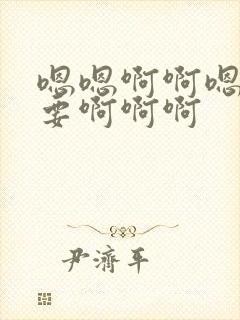 嗯嗯啊啊嗯
要啊啊啊
尹濟平